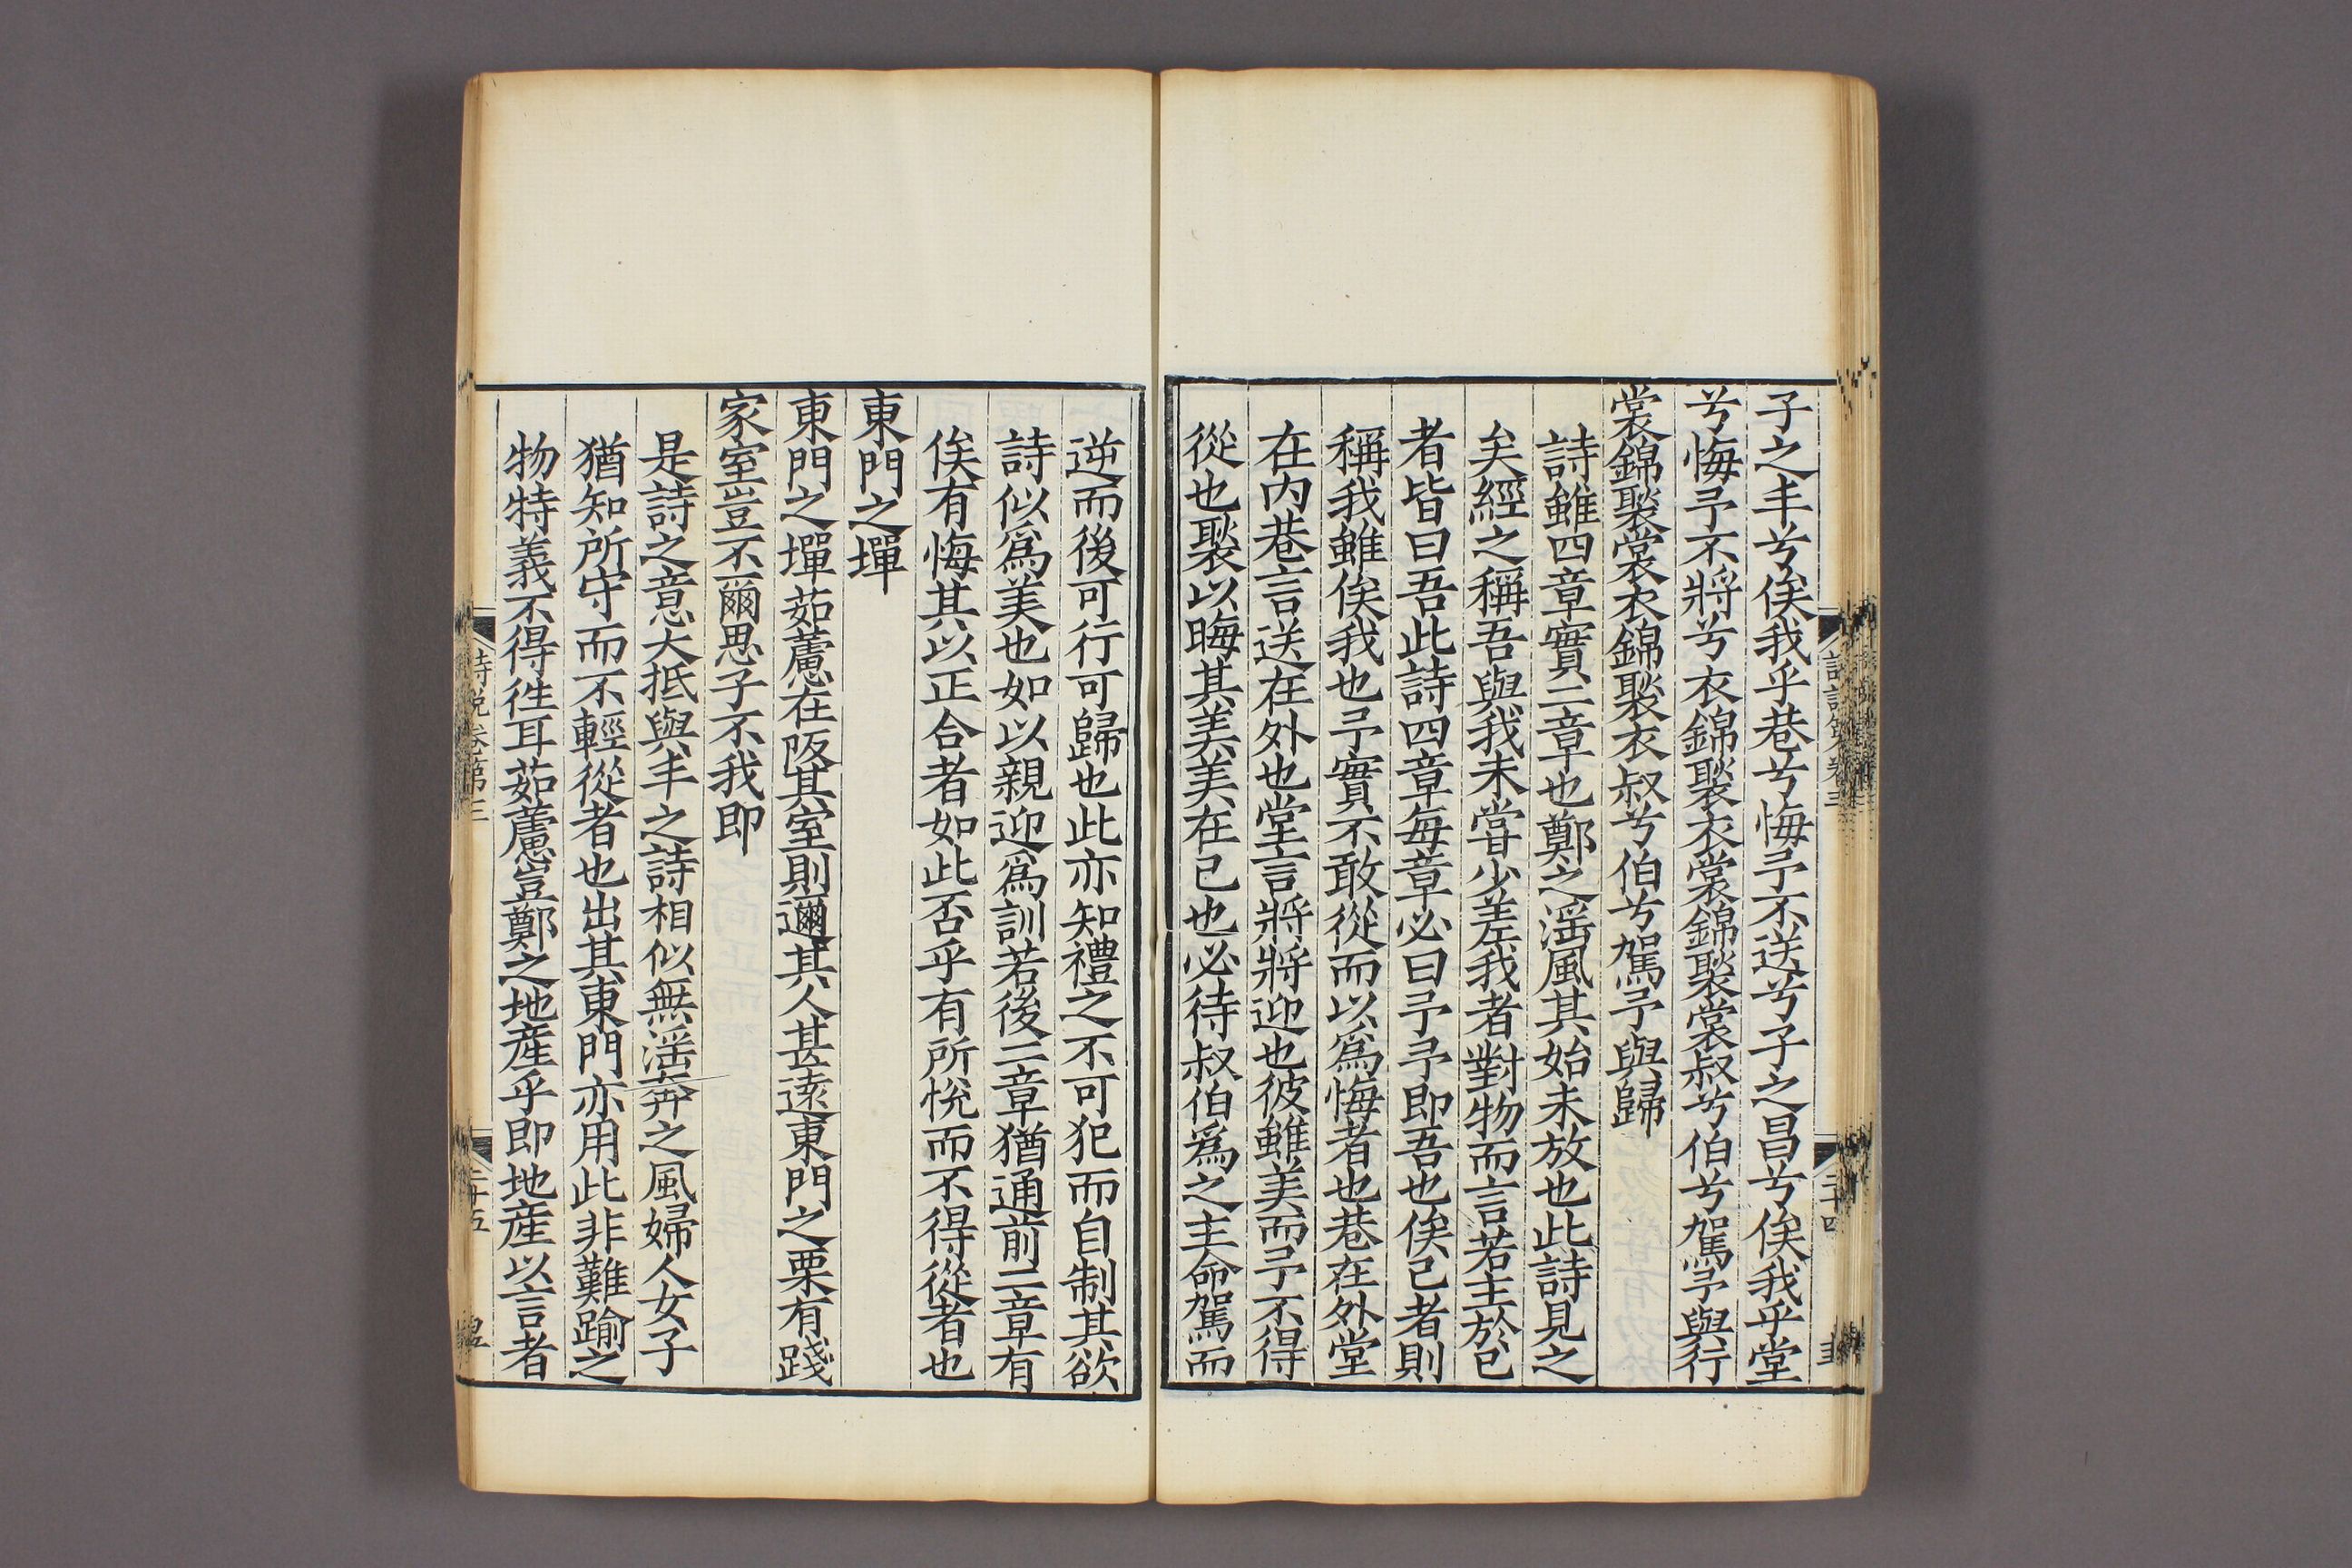 子之丰兮俟我乎巷兮悔予不送兮子之昌兮俟我乎堂
兮悔予不將兮衣錦褧衣裳錦褧裳叔兮伯兮駕予與行
裳錦褧裳衣錦褧衣叔兮伯兮駕予與歸
詩雖四章實二章也鄭之滛風其始未放也此詩見之
矣經之稱吾與我未甞少差我者對物而言若主於己
者皆曰吾此詩四章每章必曰予予即吾也俟己者則
稱我雖俟我也予實不敢從而以爲悔者也巷在外堂
在内巷言送在外也堂言將將迎也彼雖美而予不得
從也褧以晦其美美在己也必待叔伯爲之主命駕而
逆而後可行可歸也此亦知禮之不可犯而自制其欲
詩似爲美也如以親迎爲訓若後二章猶通前二章有
俟有悔其以正合者如此否乎有所悅而不得從者也
東門之墠
東門之墠茹藘在阪其室則邇其人甚遠東門之栗有踐
家室豈不爾思子不我即
是詩之意大抵與丰之詩相似無滛奔之風婦人女子
猶知所守而不輕從者也出其東門亦用此非難踰之
物特義不得徃耳茹藘豈鄭之地産乎即地産以言者
詩說卷第三
二十五